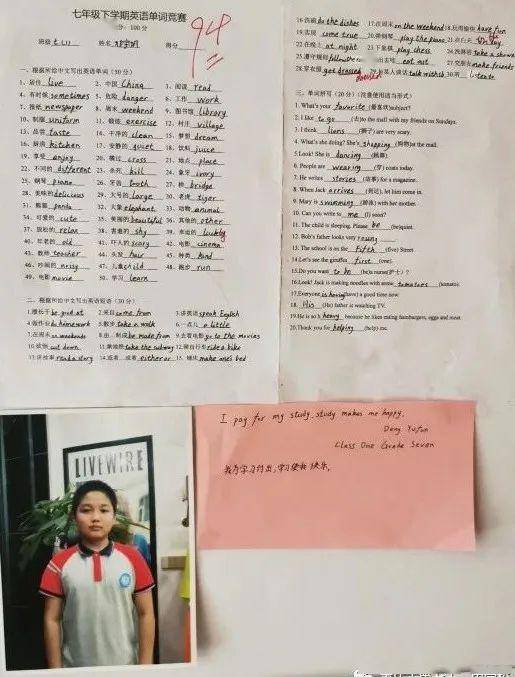 七年级下学期英语单词竞赛
分：100分
94
班级 七(1) 姓名 得分
一、根据所给中文写出英语单词（50分）
1、居住 live 2、中国 China 3、阅读 read
4、有时候 sometimes 5、危险 danger 6、工作 work
7、报纸 newspaper 8、周末 weekend 9、图书馆 library
10、制服 uniform 11、锻炼 exercise 12、村庄 village
13、品尝 taste 14、干净的 clean 15、梦想 dream
16、厨房 kitchen 17、安静的 quiet 18、饮料 juice
19、享受 enjoy 20、横过 cross 21、地点 place
22、不同的 different 23、杀死 kill 24、象牙 ivory
25、钢琴 piano 26、牙齿 tooth 27、桥 bridge
28、美味的 delicious 29、大号的 large 30、老虎 tiger
31、熊猫 panda 32、大象 elephant 33、动物 animal
34、可爱的 cute 35、美丽的 beautiful 36、其他的 other
37、放松的 relax 38、害羞的 shy 39、幸运的 luckly
40、年老的 old 41、吓人的 scary 42、电影 cinema
43、教师 teacher 44、头发 hair 45、种类 kind
46、吵闹的 noisy 47、儿童 child 48、跑步 run
49、电影 movie 50、学习 learn
二、根据所给中文写出英语短语（30分）
1.擅长 be good at 2.来自 come from 3.讲英语 speak English
4.做作业 do homework 5.散步 take a walk 6.一点儿 a little
7.在周末 on weekends 8.由…制成 be made from 9.去看电影 go to the movies
10.砍倒 cut down 11.乘地铁 take the subway 12.骑自行车 ride a bike
13.讲故事 read a story 14.或者…或者 either or 15.铺床 make one's bed
16.洗碗 do the dishes 17.在周末 on the weekend 18.玩得愉快 have fun
19.去现 come true 20.弹钢琴 play the piano 21.在白天
22.在晚上 at night 23.下象棋 play chess 24.洗淋浴 take a shower
25.遵守规则 出去吃 eat out 27.交朋友 make friends
28.穿衣服 get dressed 和某人谈话 talk with sb 30.听 listen to
三、单词拼写（20分）（注意使用适当形式）
1. What's your favorite (最喜欢)subject?
2. I like to go (去)to the mall with my friends on Sundays.
3. I think lions (狮子) are very scary.
4. What's she doing? She's shopping (购物)at the mall.
5. Look! She is dancing (跳舞).
6. People are wearing (穿) coats today.
7. He writes stories (故事) for a magazine.
8. When Jack arrives (到达), let him come in.
9. Mary is swimming (游泳) with her mother.
10. Can you write to me (I) soon?
11. The child is sleeping. Please be (be)quiet.
12. Bob's father looks very young
13. The school is on the Fifth (five) Street.
14. Let's see the giraffes first (one).
15. Do you want to be (be)a nurse(护士)?
16. Look! Jack is making noodles with some tomatoes (tomato).
17. Everyone is having(have) a good time now.
18. His (He) father is watching TV.
19. He is so h heavy because he likes eating hamburgers, eggs and meat.
20. Thank you for helping (help) me.
I pay for my study. study makes me happy.
Deng Yufan
Class One Grade Seven
我为学习付出，学习使我快乐。
LIVEWIRE